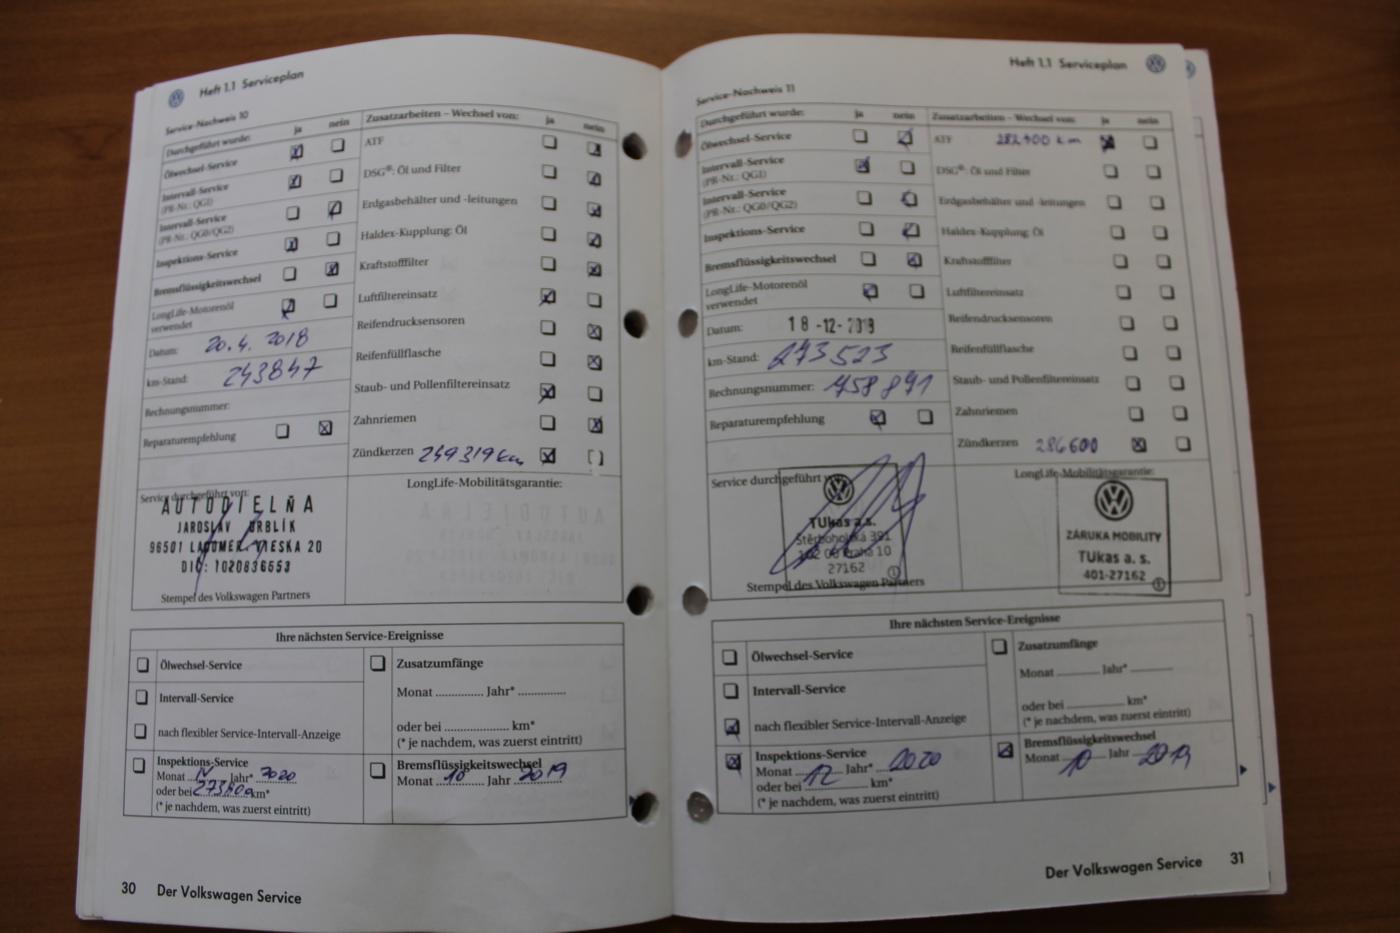 Heft 1.1 Serviceplan
Service-Nachweis 10
Durchgeführt wurde: ja nein
Ölwechsel-Service
Intervall-Service
(PR-Nr.: QG1)
Intervall-Service
(PR-Nr.: QG0/QG2)
Inspektions-Service
Bremsflüssigkeitswechsel
LongLife-Motorenöl
verwendet
Datum: 20.4. 2018
km-Stand: 243847
Rechnungsnummer:
Reparaturempfehlung
Zusatzarbeiten – Wechsel von: ja nein
ATF
DSG®: Öl und Filter
Erdgasbehälter und -leitungen
Haldex-Kupplung: Öl
Kraftstofffilter
Luftfiltereinsatz
Reifendrucksensoren
Reifenfüllflasche
Staub- und Pollenfiltereinsatz
Zahnriemen
Zündkerzen 249319 km
Service durchgeführt von:
AUTODIELŇA
JAROSLAV URBLÍK
96501 LADOMER. VIESKA 20
DIČ: 1020836553
Stempel des Volkswagen Partners
LongLife-Mobilitätsgarantie:
Ihre nächsten Service-Ereignisse
Ölwechsel-Service
Intervall-Service
nach flexibler Service-Intervall-Anzeige
Inspektions-Service
Monat IV Jahr* 2020
oder bei km*
(* je nachdem, was zuerst eintritt)
Zusatzumfänge
Monat ............... Jahr* ...............
oder bei ..................... km*
(* je nachdem, was zuerst eintritt)
Bremsflüssigkeitswechsel
Monat 10 Jahr 2019
30 Der Volkswagen Service
Heft 1.1 Serviceplan
Service-Nachweis 11
Durchgeführt wurde: ja nein
Ölwechsel-Service
Intervall-Service
(PR-Nr.: QG1)
Intervall-Service
(PR-Nr.: QG0/QG2)
Inspektions-Service
Bremsflüssigkeitswechsel
LongLife-Motorenöl
verwendet
Datum: 18-12-2018
km-Stand: 273523
Rechnungsnummer: 458891
Reparaturempfehlung
Zusatzarbeiten – Wechsel von: ja nein
ATF 282 400 km
DSG®: Öl und Filter
Erdgasbehälter und -leitungen
Haldex-Kupplung: Öl
Kraftstofffilter
Luftfiltereinsatz
Reifendrucksensoren
Reifenfüllflasche
Staub- und Pollenfiltereinsatz
Zahnriemen
Zündkerzen 286600
Service durchgeführt
TUkas a.s.
Štěrboholská 391
102 00 Praha 10
27162
Stempel des Volkswagen Partners
LongLife-Mobilitätsgarantie:
ZÁRUKA MOBILITY
TUkas a. s.
401-27162
Ihre nächsten Service-Ereignisse
Ölwechsel-Service
Intervall-Service
nach flexibler Service-Intervall-Anzeige
Inspektions-Service
Monat 12 Jahr* 2020
oder bei ..................... km*
(* je nachdem, was zuerst eintritt)
Zusatzumfänge
Monat ............... Jahr* ...............
oder bei ..................... km*
(* je nachdem, was zuerst eintritt)
Bremsflüssigkeitswechsel
Monat 10 Jahr 2019
Der Volkswagen Service 31